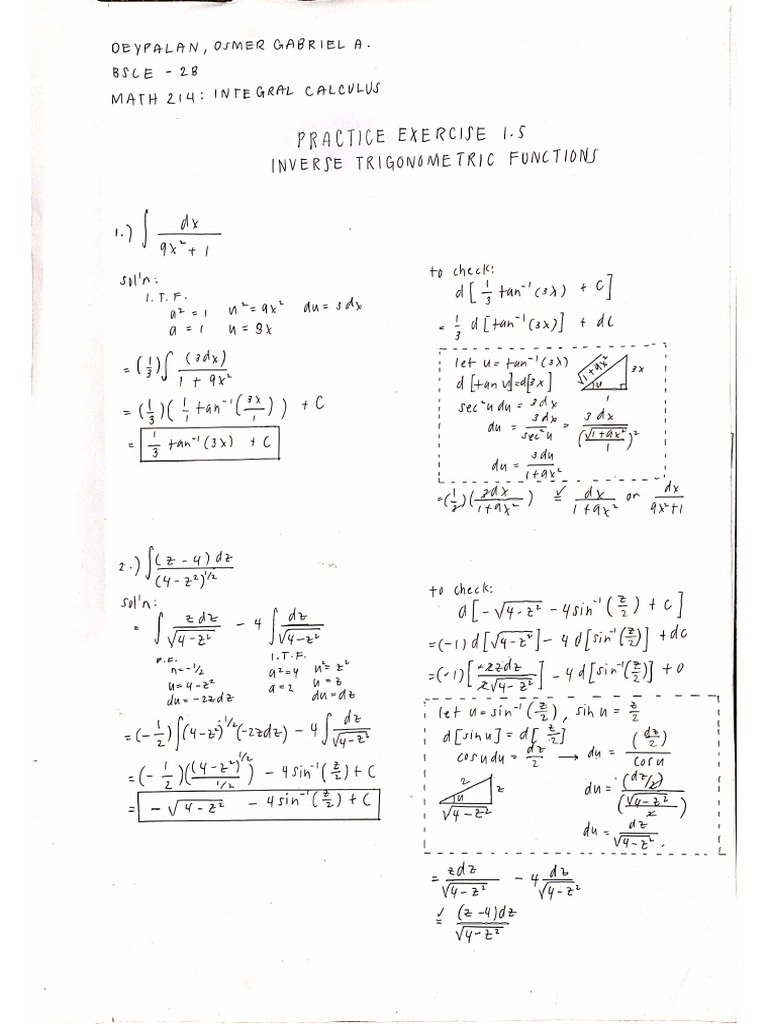 DEYPALAN, OSMER GABRIEL A.
BSCE - 2B
MATH 214: INTEGRAL CALCULUS
PRACTICE EXERCISE 1.5
INVERSE TRIGONOMETRIC FUNCTIONS
1.) ∫ dx / (9x² + 1)
sol'n:
I.T.F.
a² = 1 u² = 9x² du = 3dx
a = 1 u = 3x
= (1/3) ∫ (3dx) / (1 + 9x²)
= (1/3) ( 1/1 tan⁻¹ (3x/1) ) + C
= 1/3 tan⁻¹(3x) + C
to check:
d [ 1/3 tan⁻¹(3x) + C ]
= 1/3 d [tan⁻¹(3x)] + dC
let u = tan⁻¹(3x)
d [tan u] = d[3x]
sec²u du = 3dx
du = 3dx / sec²u = 3dx / (√(1+9x²) / 1)²
du = 3du / (1+9x²)
√(1+9x²) 3x u 1
= (1/3) (3dx / (1+9x²)) ≟ dx / (1+9x²) or dx / (9x²+1)
2.) ∫ (z - 4) dz / (4 - z²)^1/2
sol'n:
= ∫ z dz / √(4-z²) - 4 ∫ dz / √(4-z²)
P.F. I.T.F.
n = -1/2 a² = 4 u² = z²
u = 4-z² a = 2 u = z
du = -2zdz du = dz
= (-1/2) ∫ (4-z²)^-1/2 (-2zdz) - 4 ∫ dz / √(4-z²)
= (-1/2) ((4-z²)^1/2 / 1/2) - 4sin⁻¹(z/2) + C
= -√(4-z²) - 4sin⁻¹(z/2) + C
to check:
d [ -√(4-z²) - 4sin⁻¹(z/2) + C ]
= (-1) d[√(4-z²)] - 4 d[sin⁻¹(z/2)] + dC
= (-1) [ -2zdz / 2√(4-z²) ] - 4 d[sin⁻¹(z/2)] + 0
let u = sin⁻¹(z/2), sin u = z/2
d[sin u] = d[z/2]
cos u du = dz/2 → du = (dz/2) / cos u
2 z u √(4-z²)
du = (dz/2) / (√(4-z²) / 2)
du = dz / √(4-z²).
= zdz / √(4-z²) - 4 dz / √(4-z²)
≟ (z-4)dz / √(4-z²)